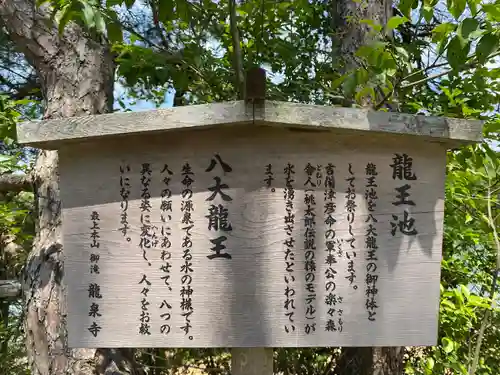 龍王池
龍王池を八大龍王の御神体と
してお祭りしています。
吉備津彦命の軍奉公の楽々森
ささもり
舎人(桃太郎伝説の猿のモデル)が
とねり
水を湧き出させたといわれてい
ます。
八大龍王
生命の源泉である水の神様です。
人々の願いにあわせて、八つの
異なる姿に変化し、人々をお救
へんげ
いになります。
最上本山 御滝 龍泉寺